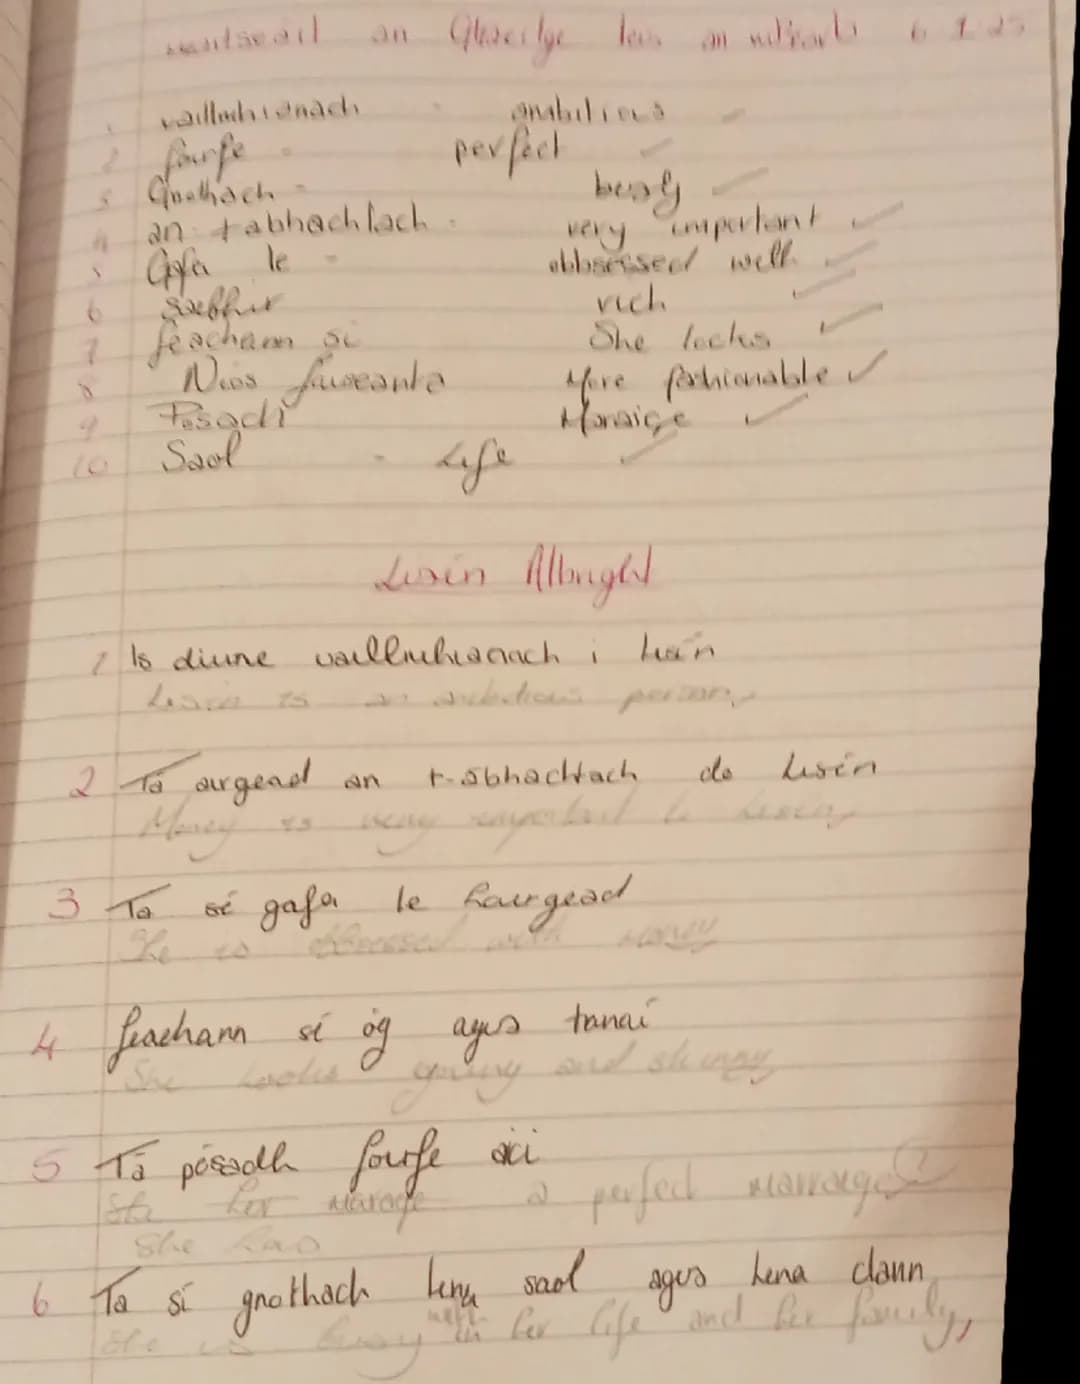 an Ghaeilge leis an 6 1 25
1 vaillmhianach - ambitious
2 foirfe - perfect
3 Gnothach - besy
4 an tabhachtach - very important
5 Gafa le - obbsessed with
6 saibhir rich
7 feachann si She looks
8 Nios faiseanta More fashionable
9 Posadh Maraige
10 Saol - Life
Lisín Albright
1 Is diune vaillmhianach i Lisín
Lisín is an ambitious person,
2 Tá airgead an t-abhachtach do Lisín
Money is very important to Lisín,
3 Ta sé gafa le hairgead
She is obbsessed with money
4 feachann sí óg agus tanaí
She looks young and skinny
5 Tá pósadh foirfe aici
She her marage a perfect marrage ?
She has
6 Ta sí gnothach lena saol agus lena clann
with
She is busy in her life and her family,